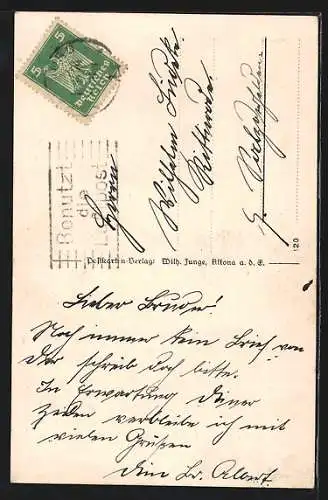 5
5
Deutsches
Reich
Benutzt
die
Luftpost
Herrn
Wilhelm
Postkarten-Verlag: Wilh. Junge, Altona a. d. E.
120
Lieber Bruder!
Noch immer kein Brief von
Dir schreib doch bitte.
In Erwartung Deiner
Zeilen verbleibe ich mit
vielen Grüßen
Dein Br. Albert